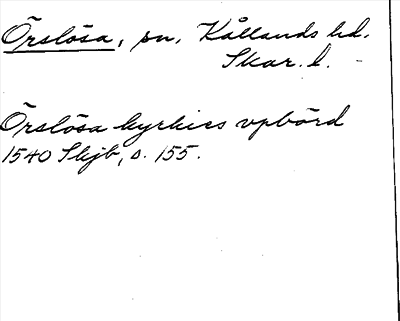 Örslösa, sn. Kållands hd.
Skar. l.
Örslösa kyrkies vpbörd
1540 Skjb, s. 155.